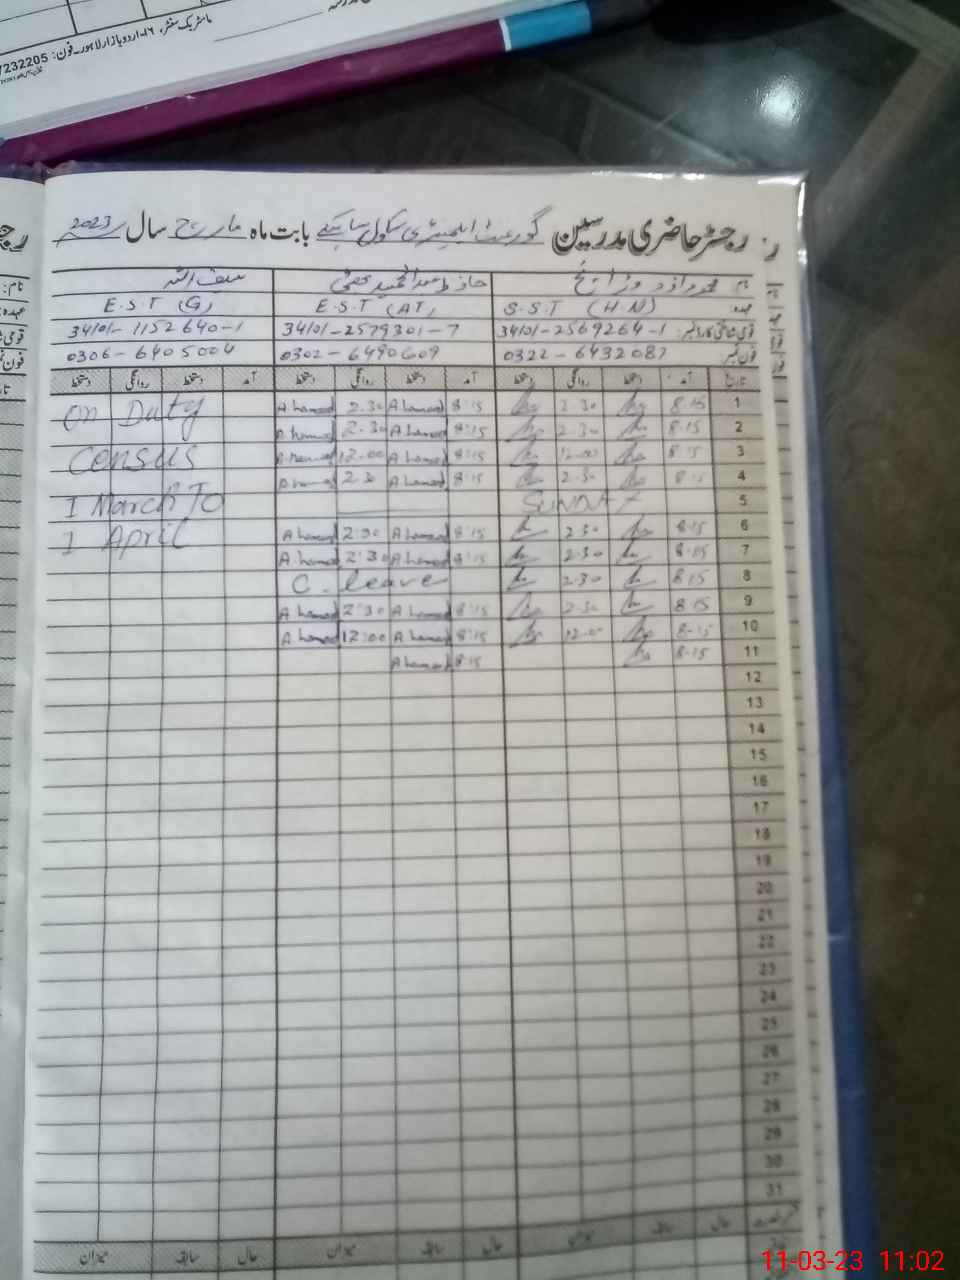 ماسٹر بک سنٹر، ۱۶۔اردو بازار لاہور۔فون: 7232205
رجسٹر حاضری مدرسین گورنمنٹ ایلیمنٹری سکول بابت ماہ مارچ سال 2023
نام
E.S.T (G) E.S.T (AT) S.S.T (H.M) عہدہ
34101-1152640-1 34101-2579301-7 34101-2569264-1 قومی شناختی کارڈ نمبر:
0306-6405004 0302-6490609 0322-6432087 فون نمبر:
دستخط روانگی دستخط آمد دستخط روانگی دستخط آمد دستخط روانگی دستخط آمد تاریخ
On Duty A hamed 2.30 A hamed 8:15 2.30 8.15 1
A hamed 2.30 A hamed 8:15 2.30 8.15 2
Consus A hamed 12.00 A hamed 8:15 12.00 8.15 3
A hamed 2.30 A hamed 8:15 2.30 8.15 4
1 March To SUNDAY 5
1 April A hamed 2:30 A hamed 8:15 2.30 8.15 6
A hamed 2:30 A hamed 8:15 2.30 8.15 7
C. leave 2.30 8.15 8
A hamed 2:30 A hamed 8:15 2.30 8.15 9
A hamed 12:00 A hamed 8:15 12.00 8.15 10
A hamed 8:15 8.15 11
12
13
14
15
16
17
18
19
20
21
22
23
24
25
26
27
28
29
30
31
میزان سابقہ حال میزان سابقہ حال میزان سابقہ حال
11-03-23 11:02